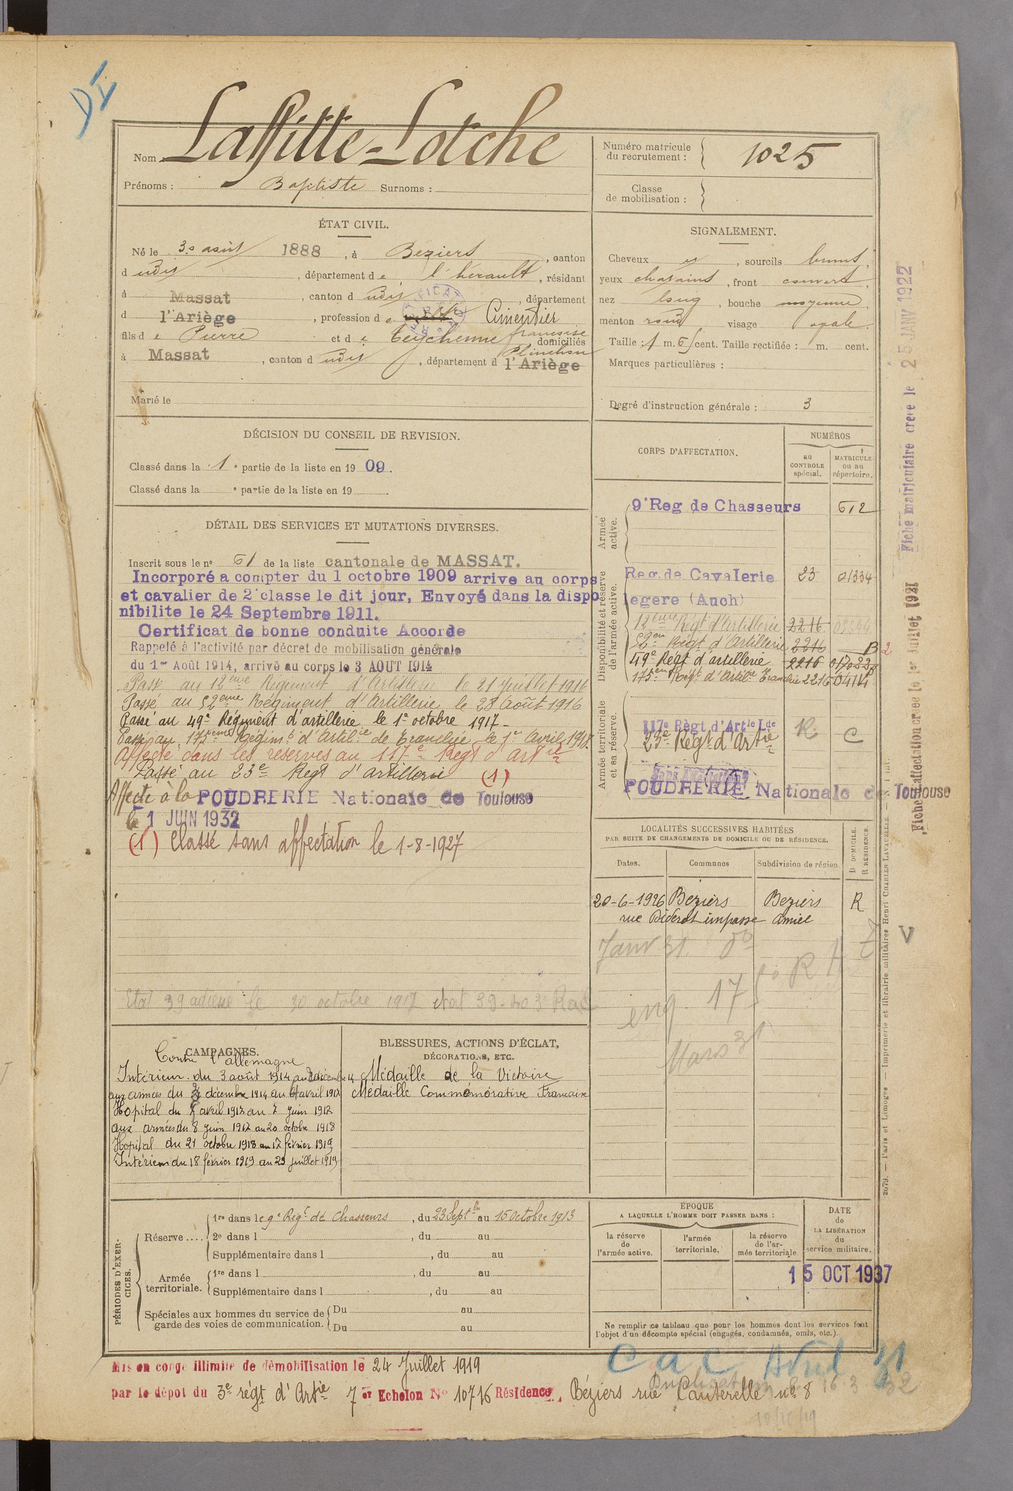 DI
Nom Laffitte-Lotche
Prénoms : Baptiste Surnoms :
Numéro matricule du recrutement : 1025
Classe de mobilisation :
ÉTAT CIVIL.
Né le 30 août 1888, à Beziers, canton
dudit, département de l'hérault, résidant
à Massat, canton dudit, département
d l'Ariège, profession de Cimentier
fils de Pierre et de Teychenne françoise domiciliés
à Massat, canton dudit, département d l'Ariège
Marié le
SIGNALEMENT.
Cheveux et, sourcils bruns,
yeux chatains, front couvert,
nez long, bouche moyenne,
menton rond visage ovale.
Taille : 1 m. 61 cent. Taille rectifiée : m. cent.
Marques particulières :
Degré d'instruction générale : 3
DÉCISION DU CONSEIL DE REVISION.
Classé dans la 1e partie de la liste en 1909.
Classé dans la e partie de la liste en 19
DÉTAIL DES SERVICES ET MUTATIONS DIVERSES.
Inscrit sous le n° 61 de la liste cantonale de MASSAT.
Incorporé a compter du 1 octobre 1909 arrive au corps
et cavalier de 2e classe le dit jour, Envoyé dans la dispo
nibilite le 24 Septembre 1911.
Certificat de bonne conduite Accorde
Rappelé à l'activité par décret de mobilisation générale
du 1er Août 1914, arrivé au corps le 3 AOUT 1914
Passé au 12eme Régiment d'Artillerie le 21 juillet 1916
Passé au 52eme Régiment d'Artillerie le 28 Août 1916
Passé au 49e Régiment d'artillerie le 1er octobre 1917-
Passé au 175eme Régimt d'Artilie de Tranchée le 1er Avril 1918.
Affecté dans les réserves au 117e Régt d'Artie
Passé au 23e Régt d'artillerie (1)
Affecté à la POUDRERIE Nationale de Toulouse
le 1 JUIN 1932
(1) Classé sans affectation le 1-8-1927
CORPS D'AFFECTATION.
NUMÉROS
au CONTROLE spécial.
MATRICULE ou au répertoire.
Armée active.
9e Reg de Chasseurs 612
Disponibilité et réserve de l'armée active.
Reg. de Cavalerie 23 01334
legere (Auch)
12eme Régt d'Artillerie 2216
52eme Régt d'Artillerie 2216
49e Régt d'artillerie 2216
175eme Régt d'Artilie Tranchée 2216 04114
Armée territoriale et sa réserve.
117e Règt d'Artie Lde R C
23e Régt d'Artie
Sans affectation
POUDRERIE Nationale de Toulouse
LOCALITÉS SUCCESSIVES HABITÉES
PAR SUITE DE CHANGEMENTS DE DOMICILE OU DE RÉSIDENCE.
Dates. Communes Subdivision de région. D. DOMICILE. R. RÉSIDENCE.
20-6-1926 Beziers Beziers R
rue Diderot impasse Amiel
Janv 31. do
Mars 31
Etat 39 adressé le 20 octobre 1917
CAMPAGNES.
Contre l'allemagne
Intérieur du 3 août 1914 au 3 décembre 14
aux armées du 4 décembre 1914 au 6 avril 1917
Hopital du 7 avril 1917 au 7 juin 1917
aux armées du 8 juin 1917 au 20 octobre 1918
Hopital du 21 octobre 1918 au 17 février 1919
Intérieur du 18 février 1919 au 23 juillet 1919
BLESSURES, ACTIONS D'ÉCLAT, DÉCORATIONS, ETC.
Médaille de la Victoire
Médaille Commémorative Française
PÉRIODES D'EXERCICES.
Réserve.... 1re dans le 9e Régt de Chasseurs, du 23 Septbre au 15 octobre 1913
2e dans l , du au
Supplémentaire dans l , du au
Armée territoriale. 1re dans l , du au
Supplémentaire dans l , du au
Spéciales aux hommes du service de garde des voies de communication. Du au
Du au
ÉPOQUE
A LAQUELLE L'HOMME DOIT PASSER DANS :
la réserve de l'armée active.
l'armée territoriale.
la réserve de l'armée territoriale
DATE de LA LIBÉRATION du service militaire.
15 OCT 1937
Ne remplir ce tableau que pour les hommes dont les services font l'objet d'un décompte spécial (engagés, condamnés, omis, etc.).
Mis en congé illimité de démobilisation le 24 Juillet 1919
par le dépôt du 3e régt d'Artie 7er Echelon No 10716 Résidence, Béziers rue Canterelle no 8
C a C Avril 31
Fiche matriculaire créée le 25 JANV 1922
Fiche d'affectation créée le 1er Juillet 1921
2679. — Paris et Limoges — Imprimerie et librairie militaires Henri CHARLES-LAVAUZELLE.
V